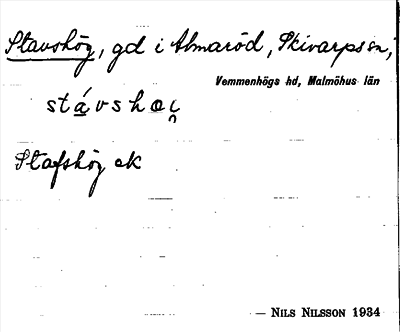 Stavshög, gd i Almaröd, Skivarps sn,
Vemmenhögs hd, Malmöhus län
stávshœi̯
Stafshög ek
— NILS NILSSON 1934